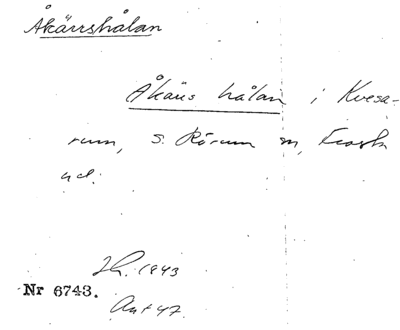 Åkärrshålan
Åkärrs hålan i Kvesa-
rum, S. Rörum sn, Frosta
hd.
1943
Nr 6743.
Ant 47.